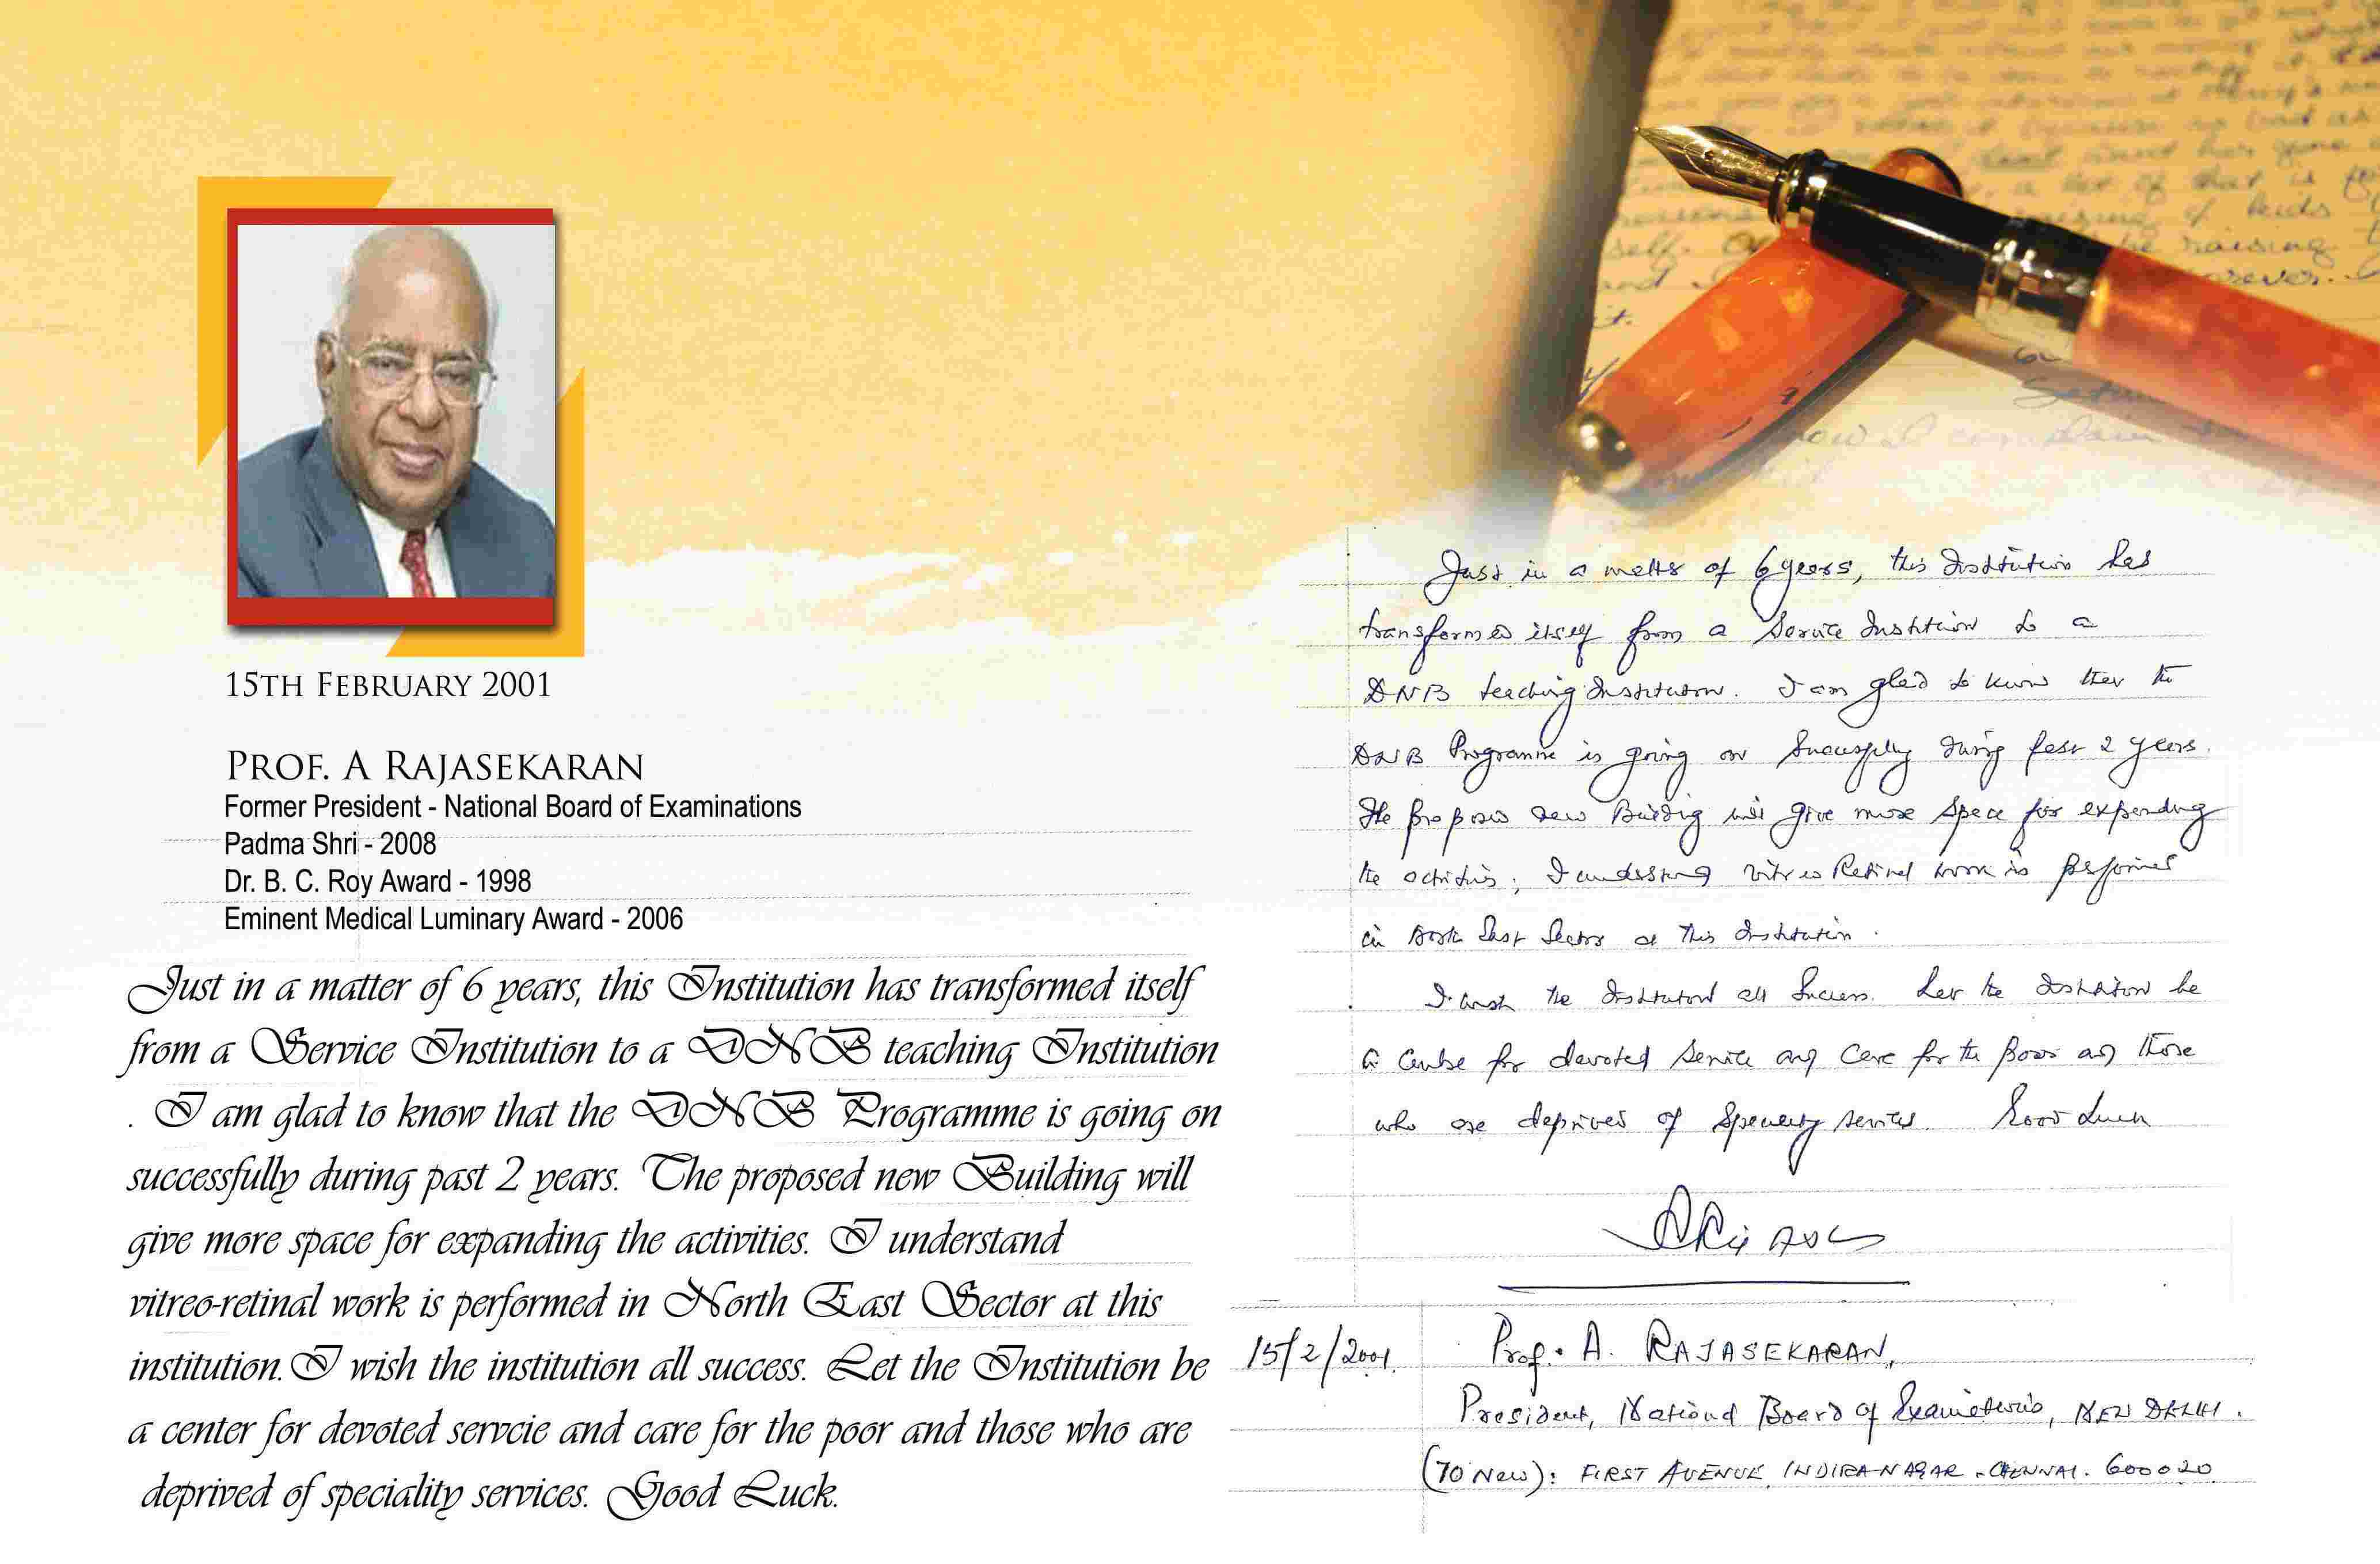 15TH FEBRUARY 2001
PROF. A RAJASEKARAN
Former President - National Board of Examinations
Padma Shri - 2008
Dr. B. C. Roy Award - 1998
Eminent Medical Luminary Award - 2006
Just in a matter of 6 years, this Institution has transformed itself
from a Service Institution to a DNB teaching Institution
. I am glad to know that the DNB Programme is going on
successfully during past 2 years. The proposed new Building will
give more space for expanding the activities. I understand
vitreo-retinal work is performed in North East Sector at this
institution. I wish the institution all success. Let the Institution be
a center for devoted servcie and care for the poor and those who are
deprived of speciality services. Good Luck.
Just in a matter of 6 years, this Institution has
transformed itself from a Service Institution to a
DNB teaching Institution. I am glad to know that the
DNB Programme is going on successfully during past 2 years.
The proposed new Building will give more space for expanding
the activities. I understand vitreo Retinal work is performed
in North East Sector at this Institution.
I wish the Institution all success. Let the Institution be
a Centre for devoted service and care for the poor and those
who are deprived of speciality services. Good Luck
15/2/2001.
Prof. A. RAJASEKARAN,
President, National Board of Examinations, NEW DELHI.
(70 New): FIRST AVENUE INDIRANAGAR. CHENNAI. 600020